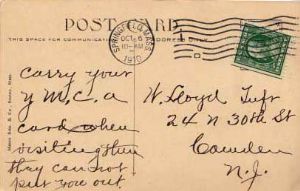 POST CARD
THIS SPACE FOR COMMUNICATION
ADDRESS ONLY
SPRINGFIELD, MASS.
OCT 6
10-AM
1910
D
carry your
Y.M.C.A
card when
visiting then
they can not
put you out.
W. Lloyd
24 N 30th St
Camden
N.J.